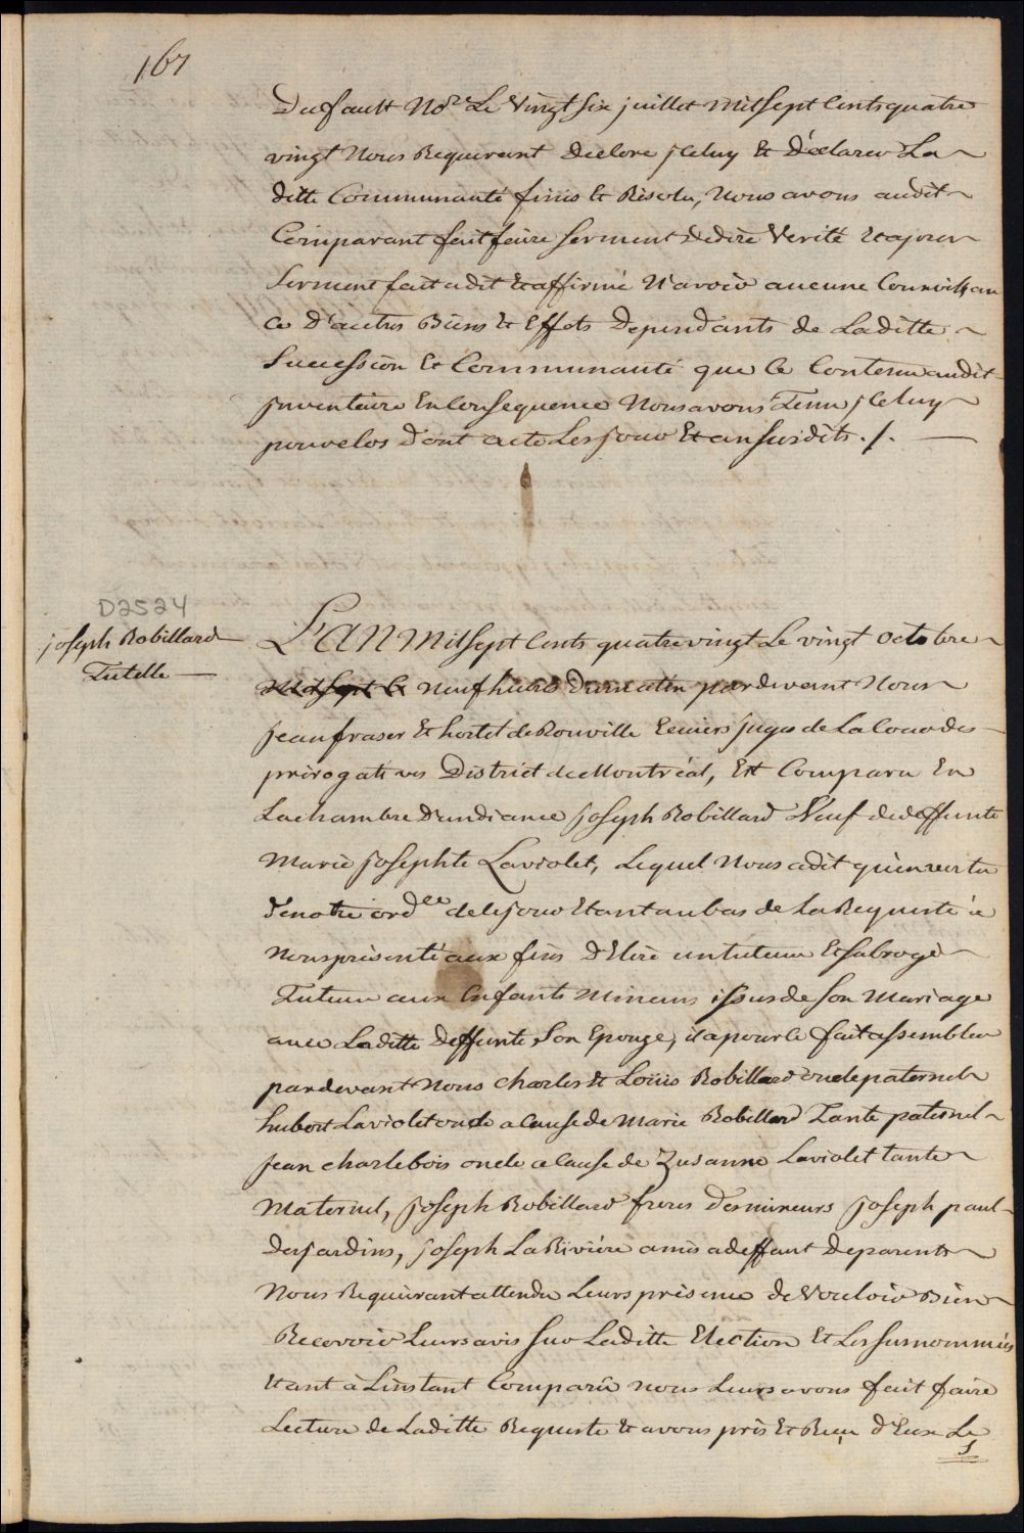 167
Dufault No.re Le Vingt six juillet Mil sept Cents quatre
vingt Nous Requerant declore jceluy Et déclarer La
ditte Communauté finis et Resolu, Nous avons audit
Comparant fait faire serment dedire Verité Et apres
Serment fait a dit Et affirmé N'avoir aucune Connoissan
ce D'autres Biens Et Effets Dependants de Laditte
Succession Et Communauté que le Contenu audit
jnventaire En Consequence Nous avons Tenu jceluy
pour clos d'ont acte Les jour Et an susdits ./.
D2524
joseph Robillard
Tutelle
L'AN Mil sept Cents quatre vingt Le vingt octobre
Mil sept C neuf heures Dumatin pardevant Nous
jean fraser Et hertel de Rouville Ecuiers juges de La Cour des
prérogatives District de Montréal, Est Comparu En
La chambre D'audiance joseph Robillard Veuf de deffunte
Marie josephte Laviolet, Lequel Nous a dit qu'en vertu
denotre ord.ce de le jour Etant au bas de La Requeste à
Nous présenté aux fins D'Elire un tuteur Et subrogé
Tuteur aux Enfants Mineurs issus de son Mariage
avec Laditte Deffunte Son Epouze, il a pour ce fait assembler
pardevant Nous charles Et Loüis Robillard oncle paternel
hubert Laviolet oncle a Cause de Marie Robillard Tante paternel
jean charlebois oncle a Cause de Zusanne Laviolet tante
Maternel, joseph Robillard freres Des mineurs joseph paul
desjardins, joseph La Rivière amis a deffaut De parents
Nous Requérant attendu Leurs présence de Vouloir Bien
Recevoir Leurs avis sur Laditte Election Et Les susnommés
Etant à L'instant Comparû nous Leurs avons fait faire
Lecture de Laditte Requeste Et avons pris Et Reçu d'Eux Le
S